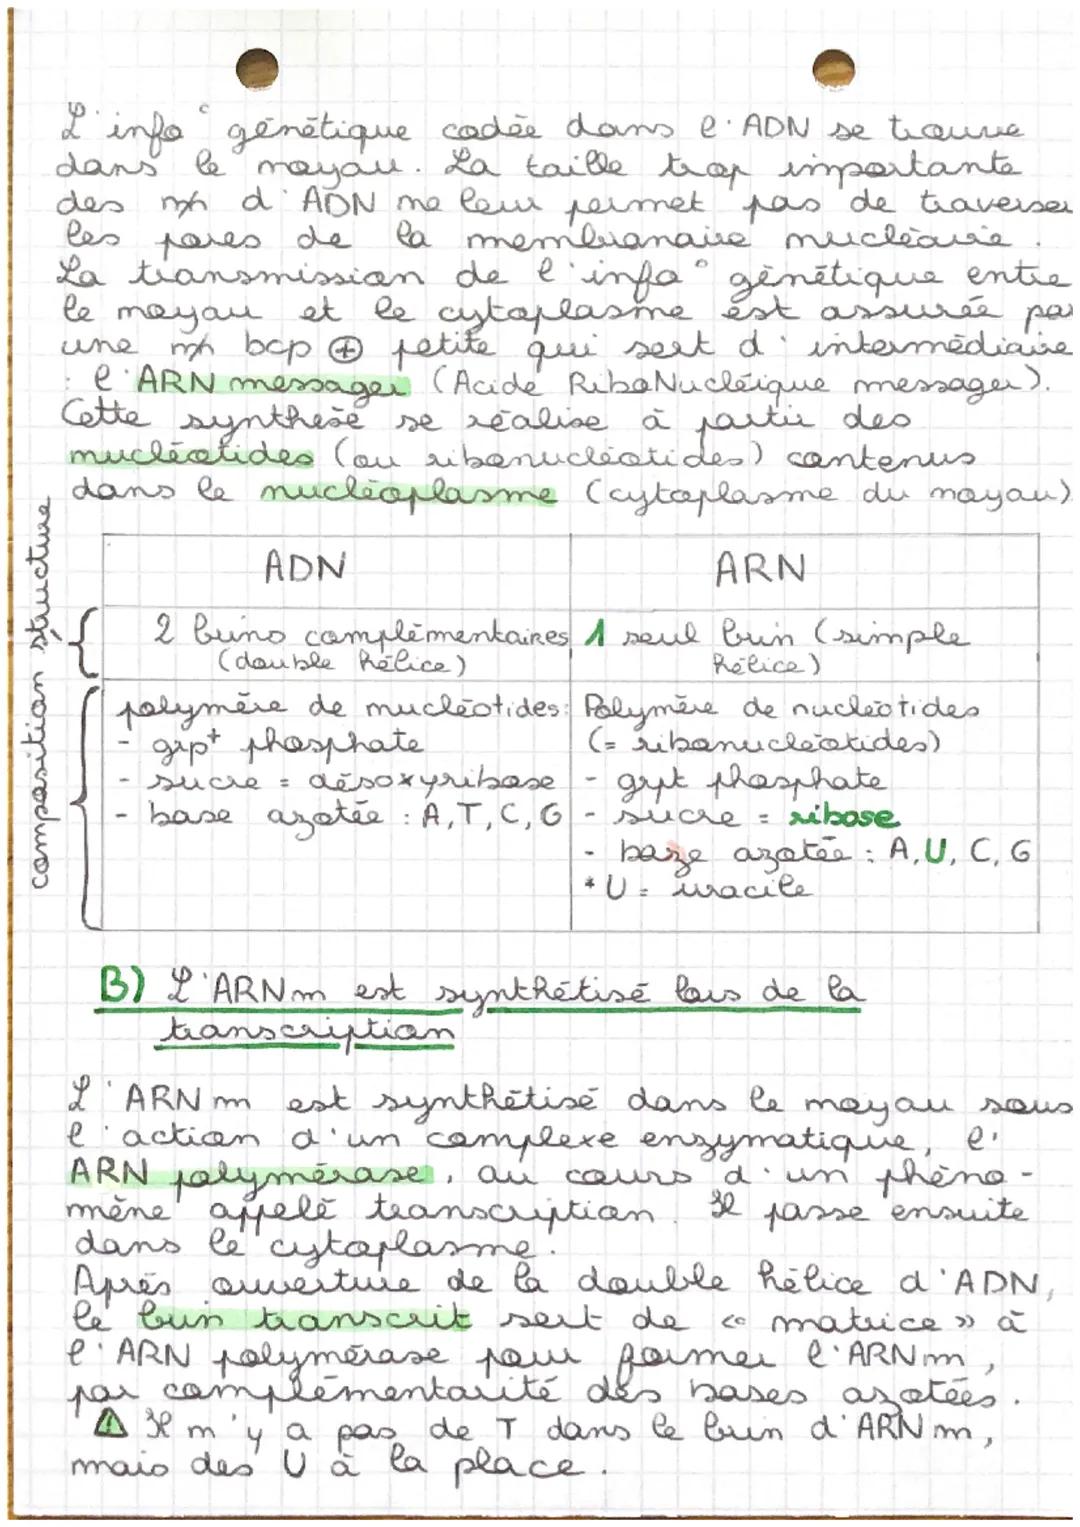 L'info° génétique codée dans l'ADN se trouve
dans le noyau. La taille trop importante
des m/h d'ADN ne leur permet pas de traverser
les pores de la membranaire nucléaire.
La transmission de l'info° génétique entre
le noyau et le cytoplasme est assurée par
une m/h bcp ⊕ petite qui sert d'intermédiaire
: l'ARN messager (Acide RiboNucléique messager).
Cette synthèse se réalise à partir des
nucléotides (ou ribonucléotides) contenus
dans le nucléoplasme (cytoplasme du noyau)
structure
composition
ADN
ARN
2 brins complémentaires
(double hélice)
1 seul brin (simple
hélice)
polymère de nucléotides:
- grpt phosphate
- sucre = désoxyribose
- base azotée : A, T, C, G
Polymère de nucléotides
(= ribonucléotides)
- grpt phosphate
- sucre = ribose
- base azotée : A, U, C, G
* U = uracile
B) L'ARNm est synthétisé lors de la
transcription
L'ARNm est synthétisé dans le noyau sous
l'action d'un complexe enzymatique, l'
ARN polymérase, au cours d'un phéno-
mène appelé transcription. Il passe ensuite
dans le cytoplasme.
Après ouverture de la double hélice d'ADN,
le brin transcrit sert de « matrice » à
l'ARN polymérase pour former l'ARNm,
par complémentarité des bases azotées.
⚠ Il n'y a pas de T dans le brin d'ARNm,
mais des U à la place.